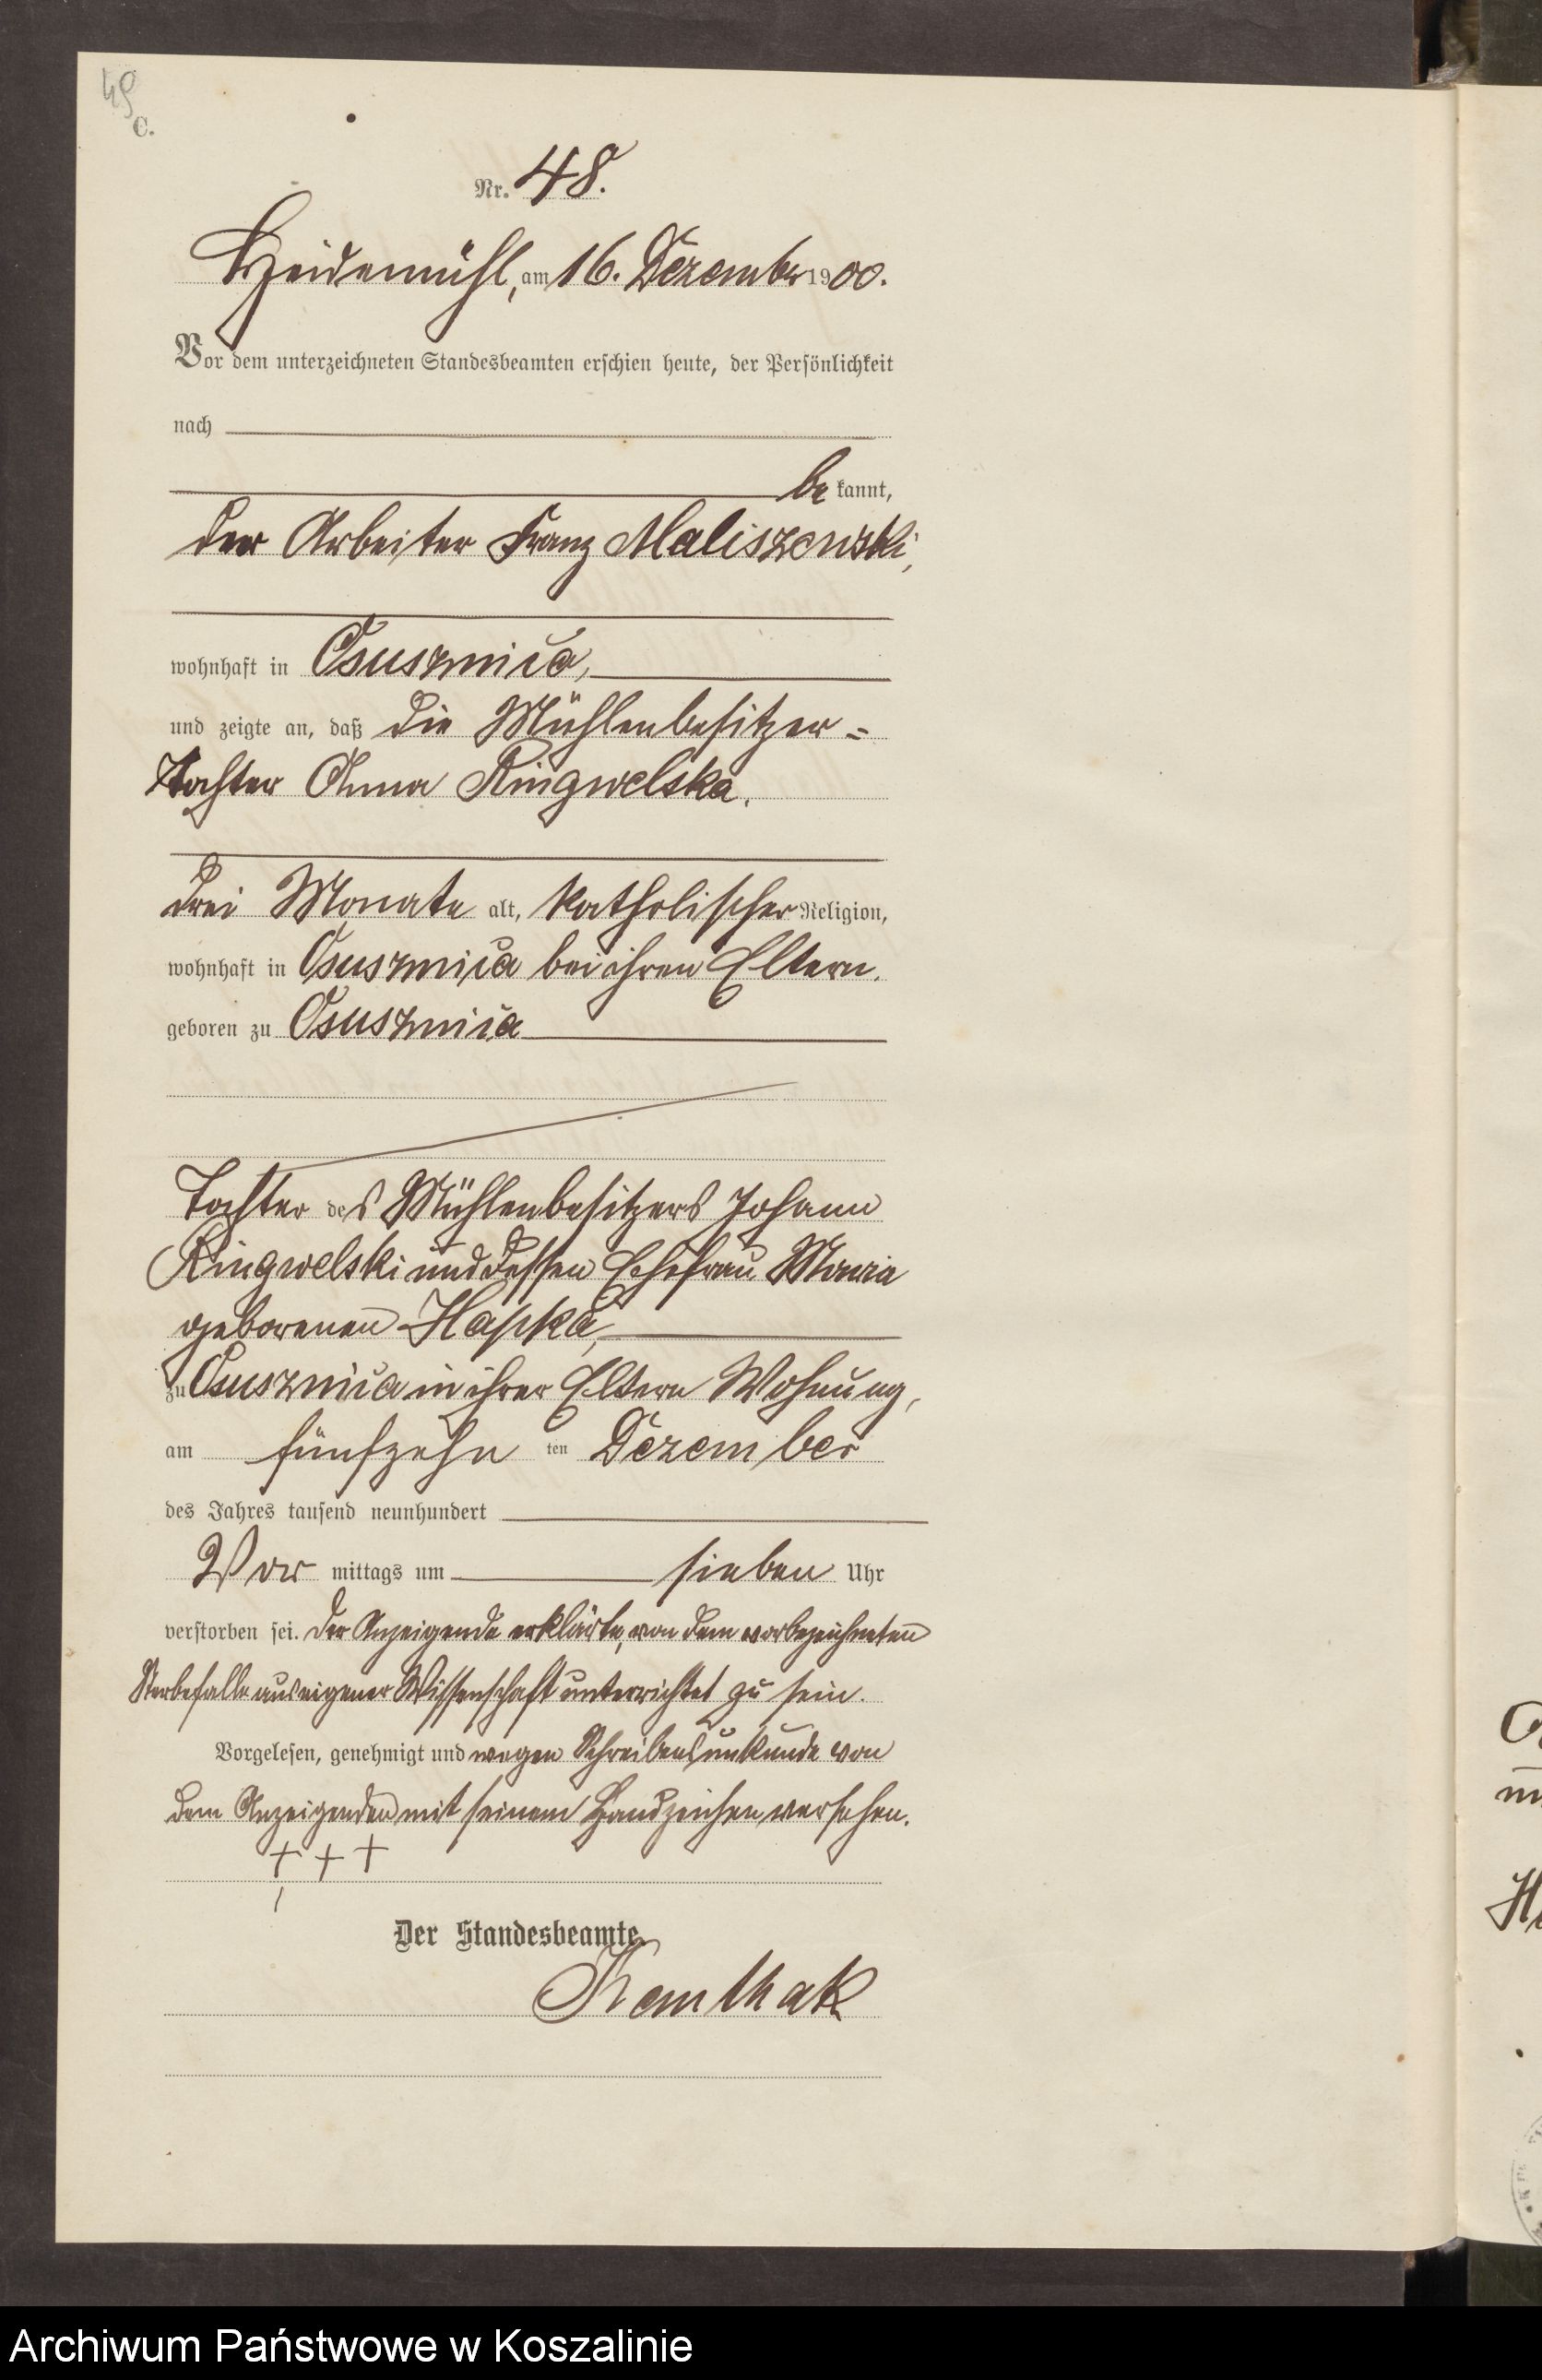 49
C.
Nr. 48.
Heidemühl, am 16. Dezember 1900.
Vor dem unterzeichneten Standesbeamten erschien heute, der Persönlichkeit
nach
be kannt,
der Arbeiter Franz Maliszewski,
wohnhaft in Osusznica,
und zeigte an, daß die Mühlenbesitzer-
Tochter Anna Ringwelska,
drei Monate alt, katholischer Religion,
wohnhaft in Osusznica bei ihren Eltern,
geboren zu Osusznica
Tochter des Mühlenbesitzers Johann
Ringwelski und dessen Ehefrau Maria
geborenen Hapka,
zu Osusznica in ihrer Eltern Wohnung,
am fünfzehn ten Dezember
des Jahres tausend neunhundert
Vor mittags um sieben Uhr
verstorben sei. Der Anzeigende erklärte, von dem vorbezeichneten
Sterbefalle aus eigener Wissenschaft unterrichtet zu sein.
Vorgelesen, genehmigt und wegen Schreibensunkunde von
dem Anzeigenden mit seinem Handzeichen versehen.
+ + +
Der Standesbeamte.
Archiwum Państwowe w Koszalinie